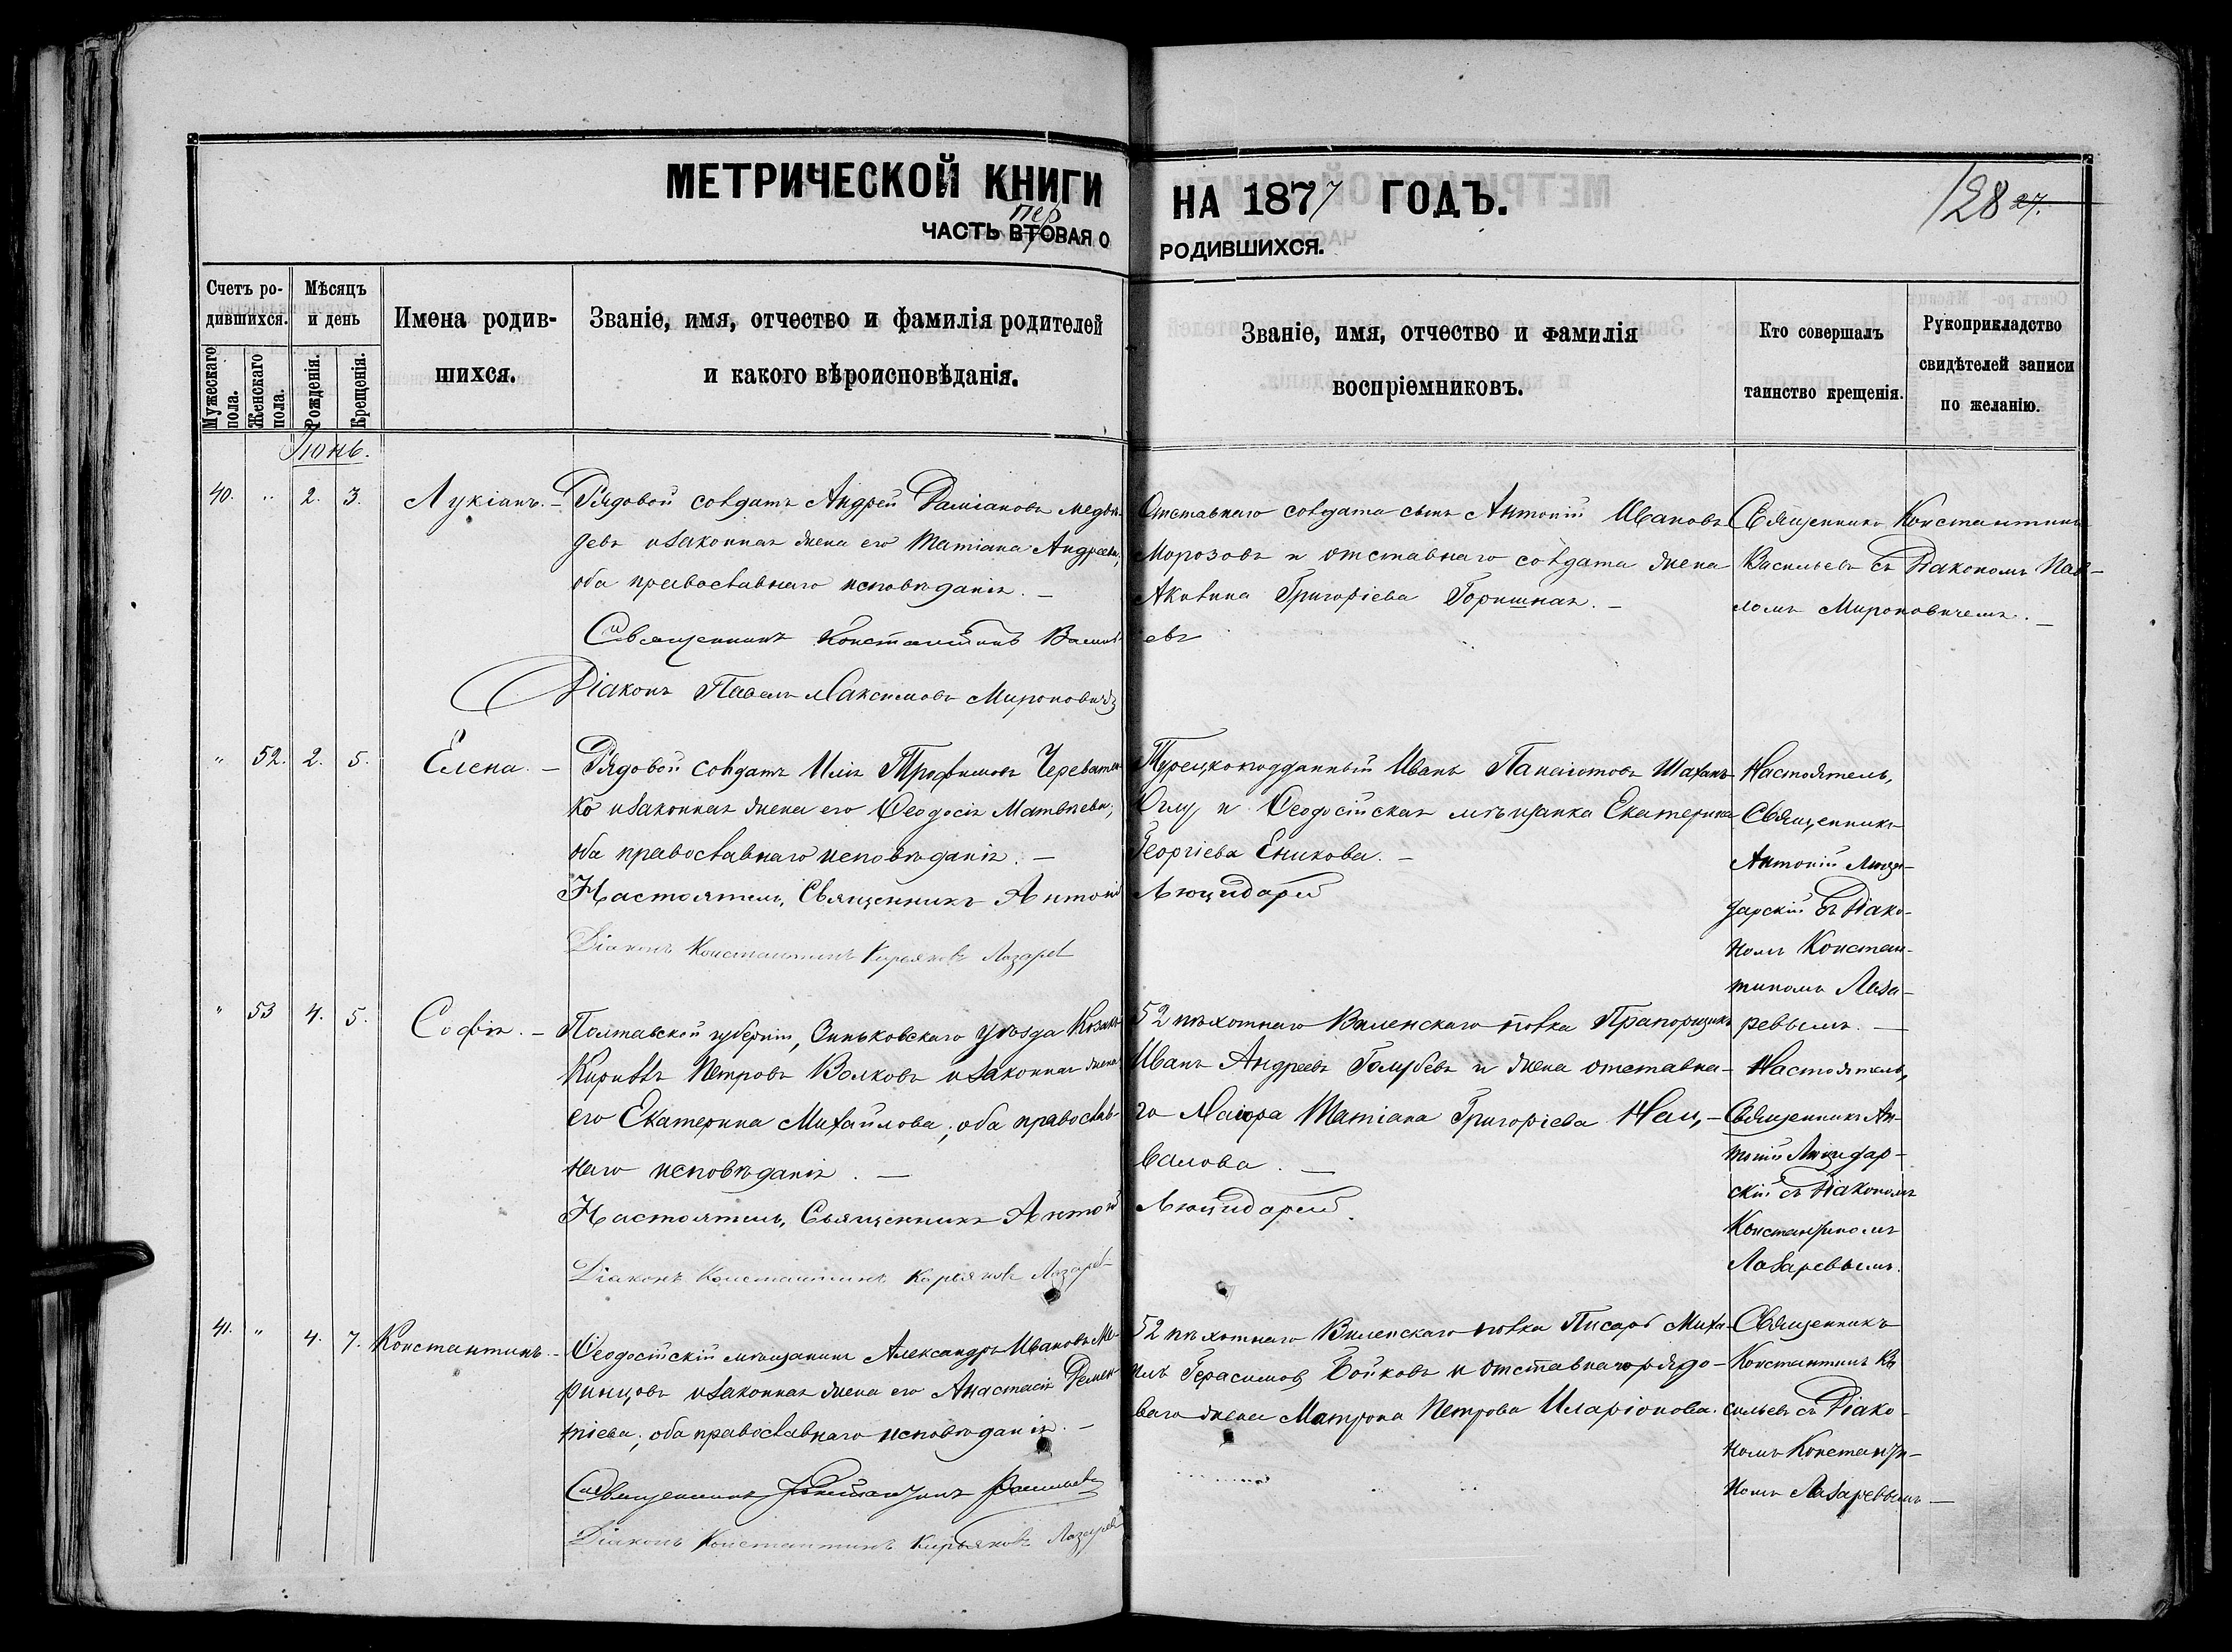 МЕТРИЧЕСКОЙ КНИГИ НА 1877 ГОДЪ.
128 27.
пер
ЧАСТЬ ВТОРАЯ О РОДИВШИХСЯ.
Счетъ ро-
дившихся.
Мужескаго пола.
Женскаго пола.
Мѣсяцъ
и день
Рожденія.
Крещенія.
Имена родив-
шихся.
Званіе, имя, отчество и фамилія родителей
и какого вѣроисповѣданія.
Званіе, имя, отчество и фамилія
воспріемниковъ.
Кто совершалъ
таинство крещенія.
Рукоприкладство
свидѣтелей записи
по желанію.
Іюнь.
40. " 2. 3. Лукіанъ. –
Рядовой солдатъ Андрей Даміановъ
и законная жена его Татіана Андреева,
оба православнаго исповѣданія. –
Священникъ Константинъ Васильевъ
Діаконъ Павелъ Максимовъ Мироновичъ
Отставнаго солдата сынъ Антоній Ивановъ
Морозовъ и отставнаго солдата жена
Акилина Григоріева Горишная. –
Священникъ Константинъ
Васильевъ съ Діакономъ Пав-
ломъ Мироновичемъ. –
" 52. 2. 5. Елена. –
Рядовой солдатъ Илія Трофимовъ Череватен-
ко и законная жена его Ѳеодосія Матвѣева,
оба православнаго исповѣданія. –
Настоятель, Священникъ Антоній Люцидарій
Діаконъ Константинъ Кирьяковъ Лазаревъ
Турецкоподданный Иванъ Панаіотовъ Шаханъ-
Оглу и Ѳеодосійская мѣщанка Екатерина
Георгіева Еникова. –
Настоятель,
Священникъ
Антоній Люци-
дарскій съ Діако-
номъ Констан-
тиномъ Лаза-
ревымъ. –
" 53 4. 5. Софія. –
Полтавской губерніи, Зиньковскаго уѣзда Козакъ
Кириллъ Петровъ Волковъ и законная жена
его Екатерина Михайлова, оба православ-
наго исповѣданія. –
Настоятель, Священникъ Антоній Люцидарій.
Діаконъ Константинъ Кирьяковъ Лазаревъ
52 пѣхотнаго Виленскаго полка Прапорщикъ
Иванъ Андреевъ Голубевъ и жена отставна-
го Маіора Татіана Григоріева
Настоятель,
Священникъ Ан-
тоній Люцидар-
скій съ Діакономъ
Константиномъ
Лазаревымъ.
41. " 4. 7. Константинъ. –
Ѳеодосійскій мѣщанинъ Александръ Ивановъ Ме-
ринцовъ и законная жена его Анастасія Демен-
тіева, оба православнаго исповѣданія. –
Священникъ Константинъ Васильевъ
Діаконъ Константинъ Кирьяковъ Лазаревъ
52 пѣхотнаго Виленскаго полка Писарь Миха-
илъ Герасимовъ Бойковъ и отставнаго рядо-
ваго жена Матрона Петрова Иларіонова.
Священникъ
Константинъ Ва-
сильевъ съ Діако-
номъ Константи-
номъ Лазаревымъ –